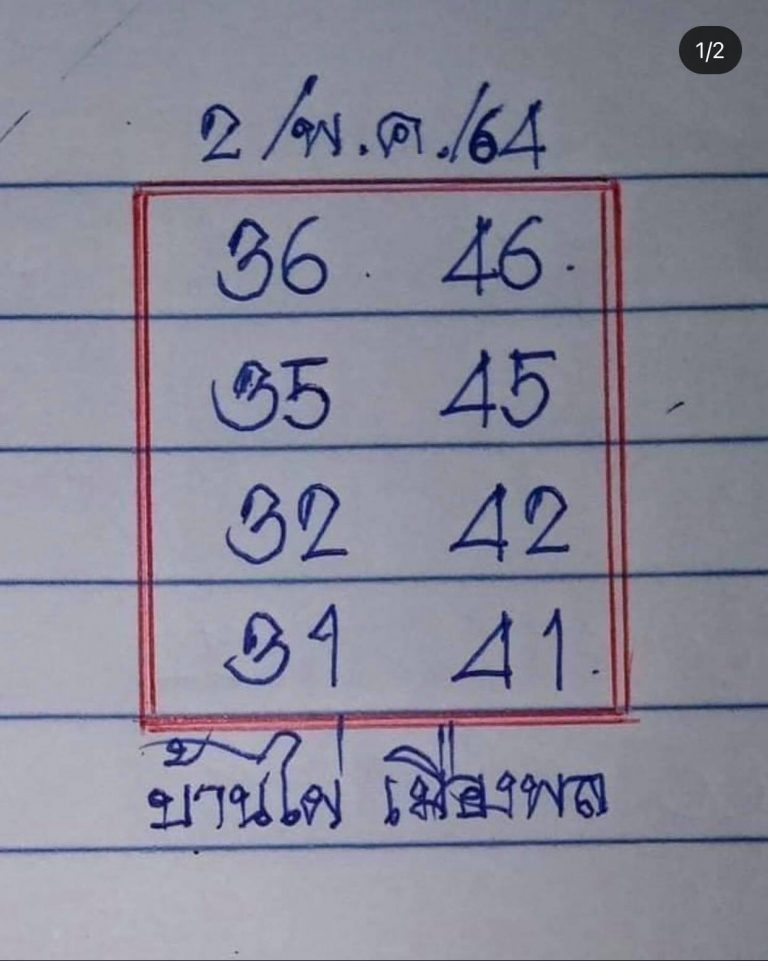 1/2
2/พ.ค./64
36 46
35 45
32 42
31 41
บ้านไผ่ เมืองพล